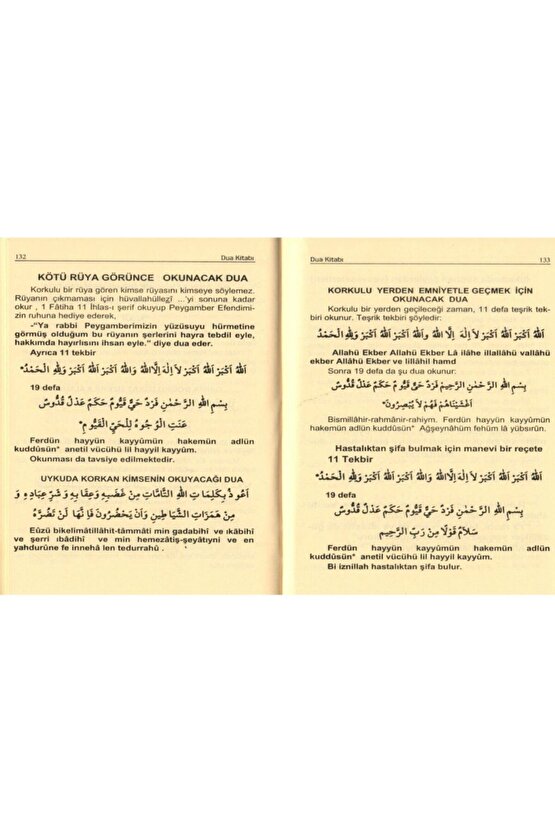 132 Dua Kitabı
KÖTÜ RÜYA GÖRÜNCE OKUNACAK DUA
Korkulu bir rüya gören kimse rüyasını kimseye söylemez.
Rüyanın çıkmaması için hüvallahüllezî ...'yi sonuna kadar
okur , 1 Fâtiha 11 İhlas-ı şerif okuyup Peygamber Efendimi-
zin ruhuna hediye ederek,
-“Ya rabbi Peygamberimizin yüzüsuyu hürmetine
görmüş olduğum bu rüyanın şerlerini hayra tebdil eyle,
hakkımda hayırlısını ihsan eyle.” diye dua eder.
Ayrıca 11 tekbir
اَللهُ اَكْبَرُ اَللهُ اَكْبَرُ لاَ اِلَهَ اِلاَّاللهُ وَاللهُ اَكْبَرُ اَللهُ اَكْبَرُ وَلِلّٰهِ الْحَمْدُ*
19 defa
بِسْمِ اللهِ الرَّحْمٰنِ فَرْدٌ حَيٌّ قَيُّومٌ حَكَمٌ عَدْلٌ قُدُّوسٌ
عَنَتِ الْوُجُوهُ لِلْحَيِّ الْقَيُّومِ*
Ferdün hayyün kayyûmün hakemün adlün
kuddûsün* anetil vücühü lil hayyil kayyûm.
Okunması da tavsiye edilmektedir.
UYKUDA KORKAN KİMSENİN OKUYACAĞI DUA
اَعُوذُ بِكَلِمَاتِ اللهِ التَّامَّاتِ مِنْ غَضَبِهِ وَعِقَابِهِ وَ شَرِّ عِبَادِهِ وَ
مِنْ هَمَزَاتِ الشَّيَاطِينِ وَاَنْ يَحْضُرُونَ فَاِنَّهَا لَنْ تَضُرَّهُ
Eûzü bikelimâtillâhit-tâmmâti min gadabihî ve ıkâbihî
ve şerri ıbâdihî ve min hemezâtiş-şeyâtıyni ve en
yahdurûne fe innehâ len tedurrahû .
Dua Kitabı 133
KORKULU YERDEN EMNİYETLE GEÇMEK İÇİN
OKUNACAK DUA
Korkulu bir yerden geçileceği zaman, 11 defa teşrik tek-
biri okunur. Teşrik tekbiri şöyledir:
اَللهُ اَكْبَرُ اَللهُ اَكْبَرُ لاَ اِلَهَ اِلاَّ اللهُ واَللهُ اَكْبَرُ اَللهُ اَكْبَرُ وَلِلّٰهِ الْحَمْدُ
Allahü Ekber Allahü Ekber Lâ ilâhe illallâhü vallâhü
ekber Allâhü Ekber ve lillâhil hamd
Sonra 19 defa da şu dua okunur:
بِسْمِ اللهِ الرَّحْمٰنِ الرَّحِيمِ فَرْدٌ حَيٌّ قَيُّومٌ حَكَمٌ عَدْلٌ قُدُّوسٌ
اَغْشَيْنَاهُمْ فَهُمْ لاَ يُبْصِرُونَ*
Bismillâhir-rahmânir-rahiym. Ferdün hayyün kayyûmün
hakemün adlün kuddûsün* Ağşeynâhüm fehüm lâ yübsırûn.
Hastalıktan şifa bulmak için manevi bir reçete
11 Tekbir
اَللهُ اَكْبَرُ اَللهُ اَكْبَرُ لاَ اِلَهَ اِلاَّاللهُ وَاللهُ اَكْبَرُ اَللهُ اَكْبَرُ وَلِلّٰهِ الْحَمْدُ*
19 defa
بِسْمِ اللهِ الرَّحْمٰنِ فَرْدٌ حَيٌّ قَيُّومٌ حَكَمٌ عَدْلٌ قُدُّوسٌ
سَلاَمٌ قَوْلاً مِنْ رَبِّ الرَّحِيمِ
Ferdün hayyün kayyûmün hakemün adlün
kuddûsün* anetil vücühü lil hayyil kayyûm.
Bi iznillah hastalıktan şifa bulur.